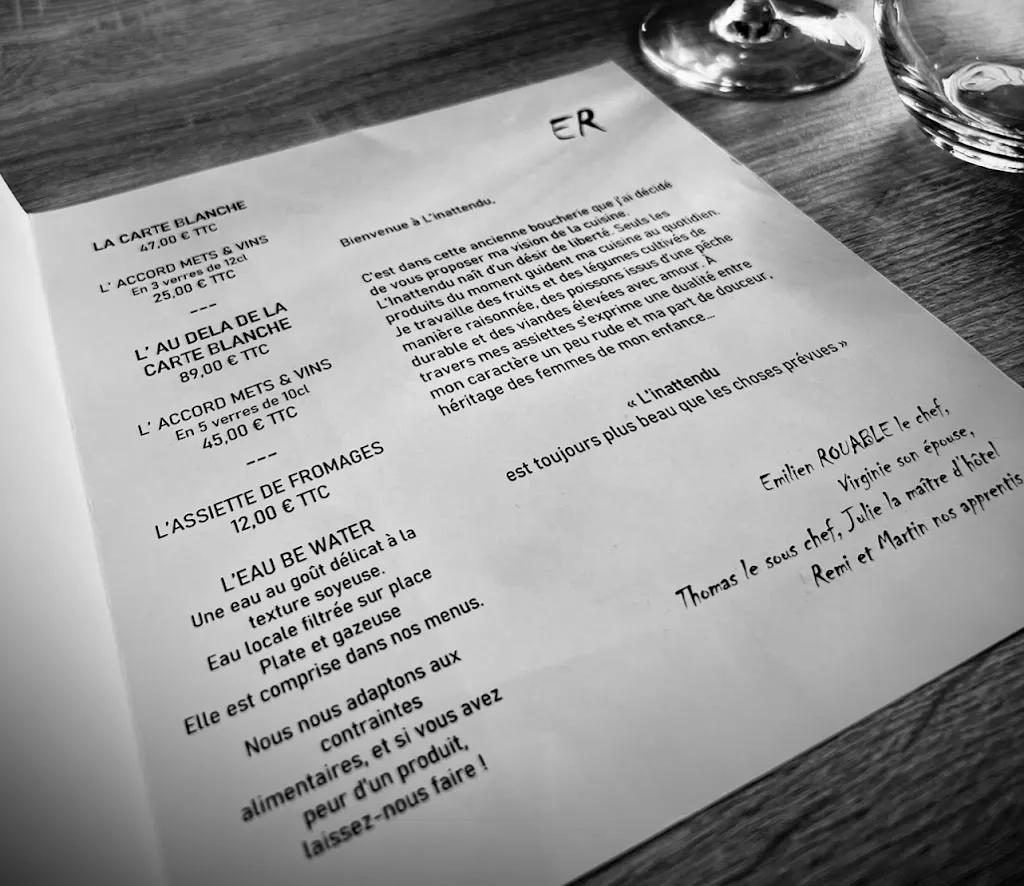 ER
LA CARTE BLANCHE
47,00 € TTC
L' ACCORD METS & VINS
En 3 verres de 12cl
25,00 € TTC
---
L' AU DELA DE LA
CARTE BLANCHE
89,00 € TTC
L' ACCORD METS & VINS
En 5 verres de 10cl
45,00 € TTC
---
L'ASSIETTE DE FROMAGES
12,00 € TTC
L'EAU BE WATER
Une eau au goût délicat à la
texture soyeuse.
Eau locale filtrée sur place
Plate et gazeuse
Elle est comprise dans nos menus.
Nous nous adaptons aux
contraintes
alimentaires, et si vous avez
peur d'un produit,
laissez-nous faire !
Bienvenue à L'inattendu,
C'est dans cette ancienne boucherie que j'ai décidé
de vous proposer ma vision de la cuisine.
L'Inattendu naît d'un désir de liberté. Seuls les
produits du moment guident ma cuisine au quotidien.
Je travaille des fruits et des légumes cultivés de
manière raisonnée, des poissons issus d'une pêche
durable et des viandes élevées avec amour. À
travers mes assiettes s'exprime une dualité entre
mon caractère un peu rude et ma part de douceur,
héritage des femmes de mon enfance...
« L'inattendu
est toujours plus beau que les choses prévues »
Emilien ROUABLE le chef,
Virginie son épouse,
Thomas le sous chef, Julie la maître d'hôtel
Remi et Martin nos apprentis